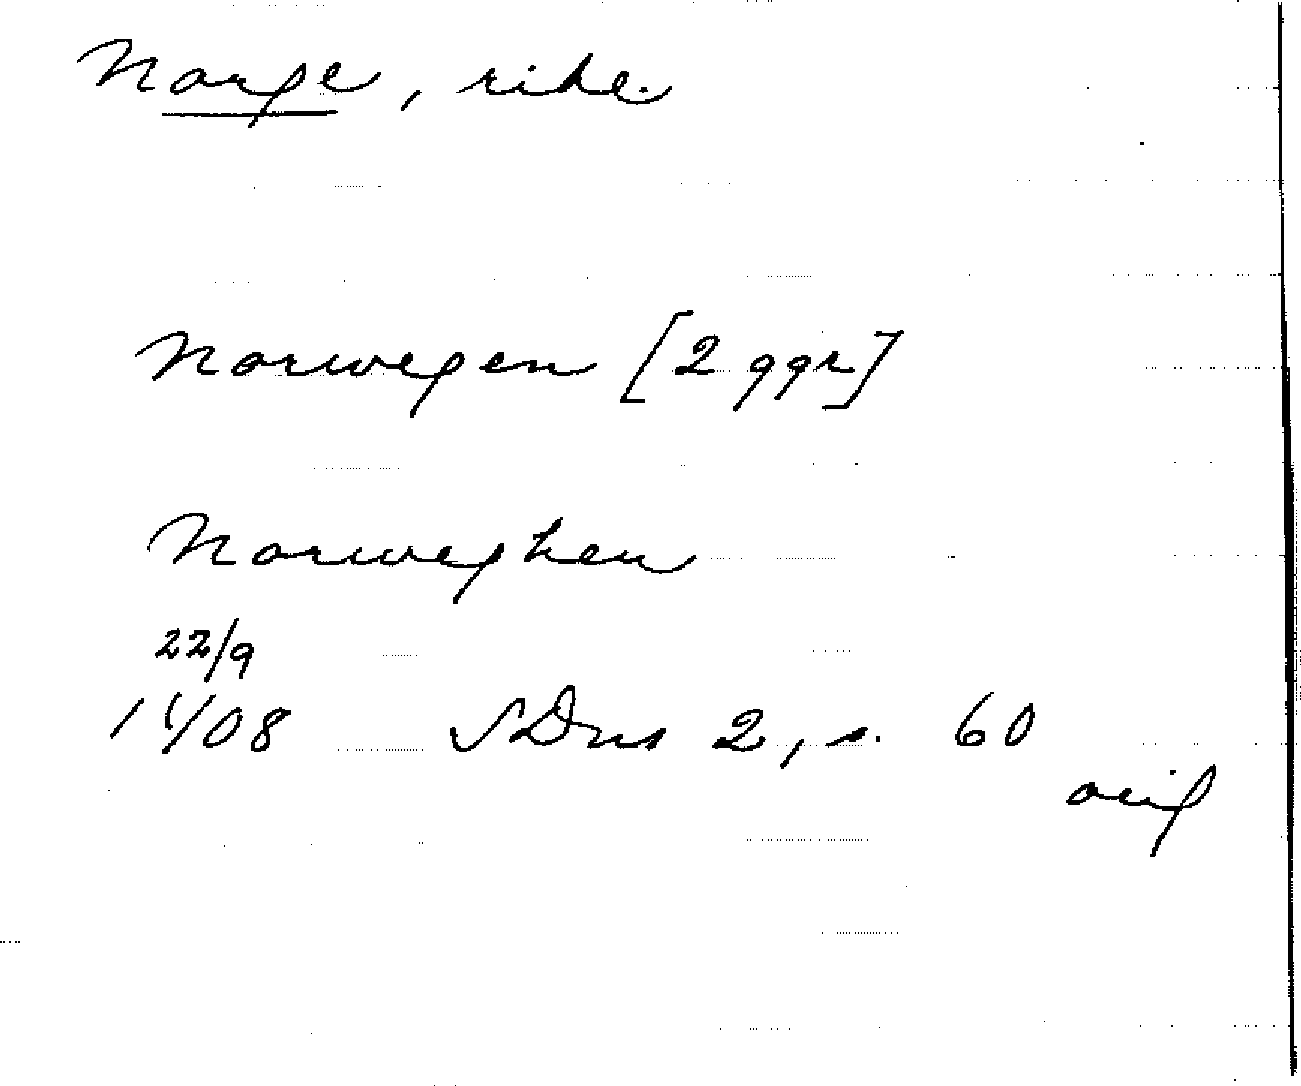 Norge, rike.
Norwegen [2 ggr]
Norweghen
22/9
1408 SDns 2, s. 60
orig